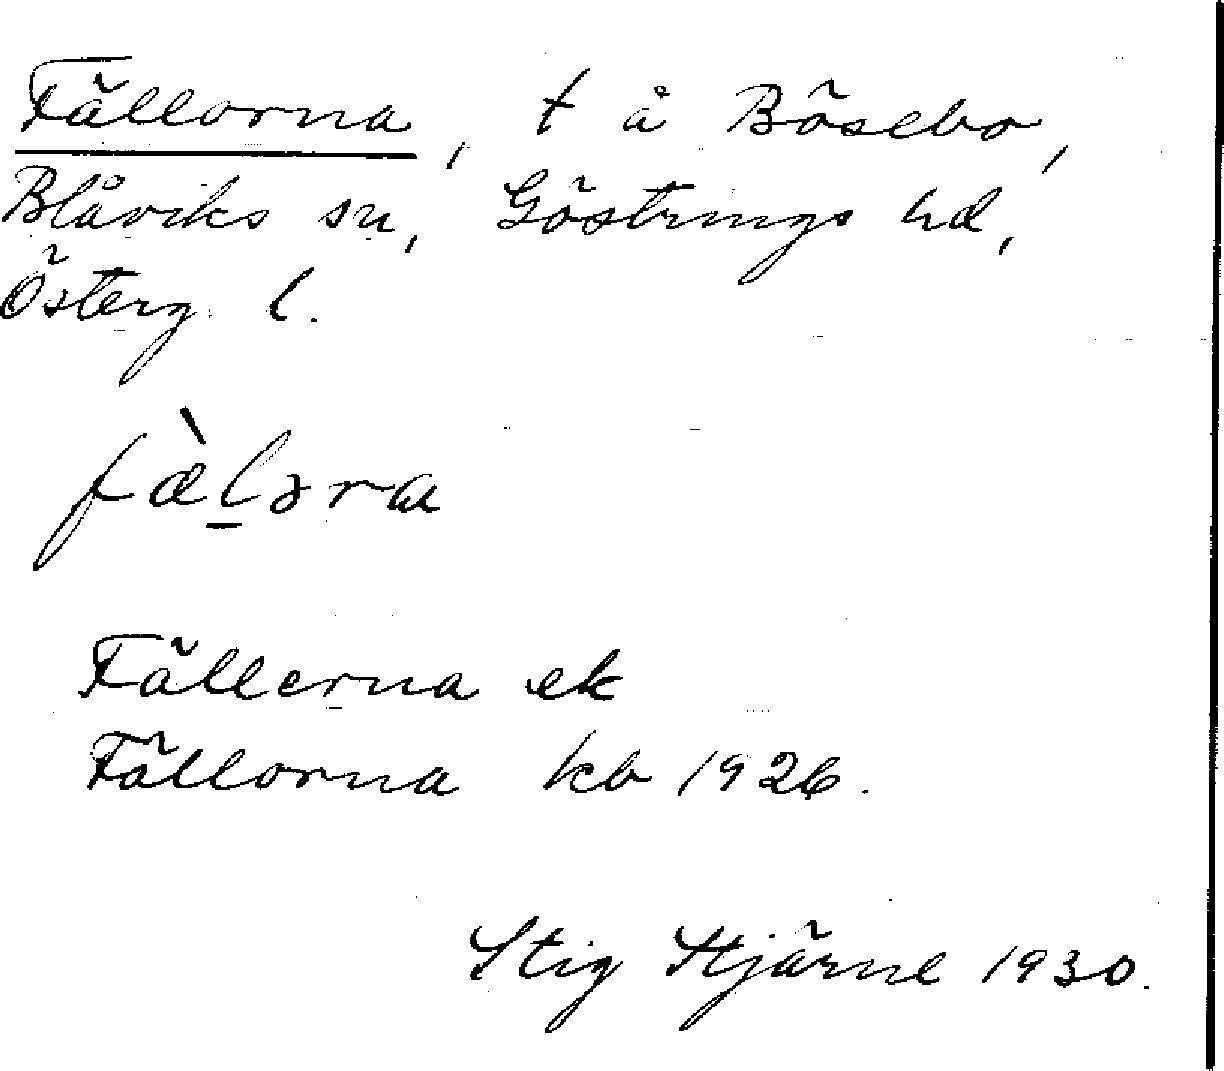 Fällorna, t å Bösebo,
Blåviks sn, Göstrings hd,
Österg. l.
fæ̀l̠əra
Fällerna ek
Fällorna kb 1926.
Stig Hjärne 1930.